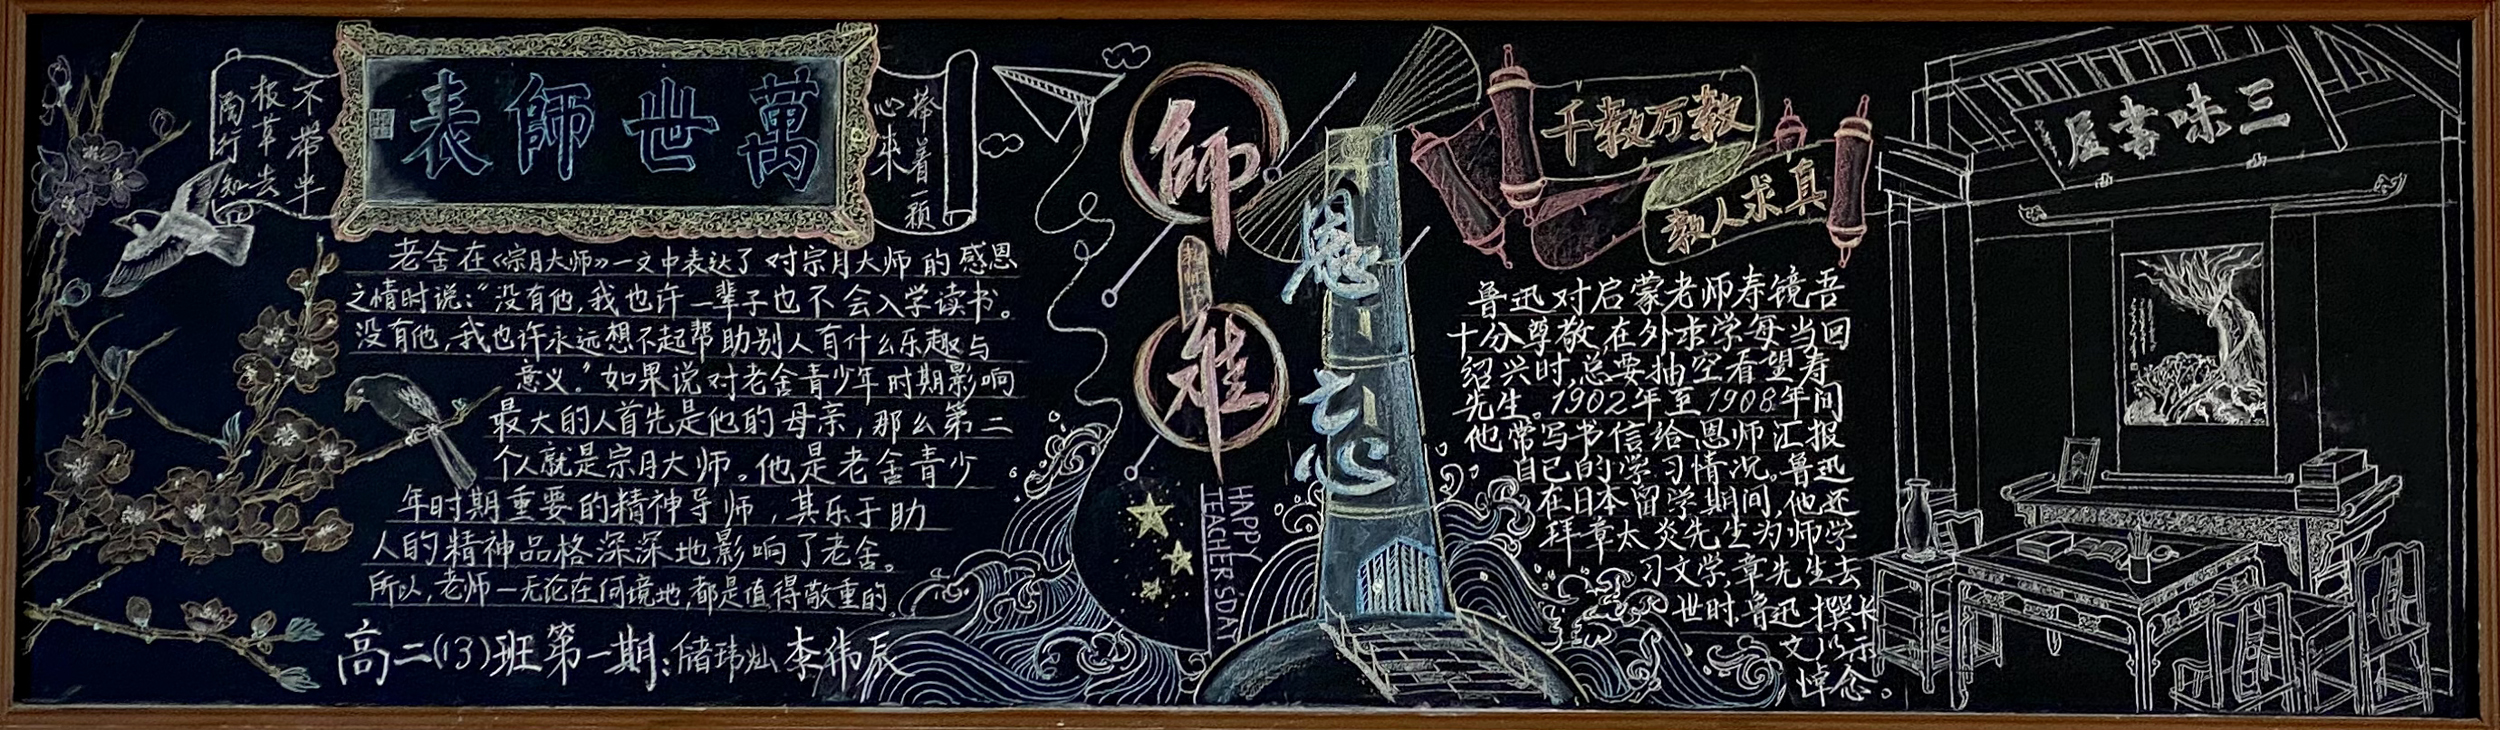 萬世師表
捧着一颗
心来
不带半
根草去
陶行知
老舍在《宗月大师》一文中表达了对宗月大师的感恩
之情时说：“没有他，我也许一辈子也不会入学读书。
没有他，我也许永远想不起帮助别人有什么乐趣与
意义。”如果说对老舍青少年时期影响
最大的人首先是他的母亲，那么第二
个人就是宗月大师。他是老舍青少
年时期重要的精神导师，其乐于助
人的精神品格深深地影响了老舍。
所以，老师一无论在何境地，都是值得敬重的。
高二(13)班第一期：储玮灿 李伟辰
師
恩
难
忘
HAPPY
TEACHER'S DAY
千教万教
教人求真
鲁迅对启蒙老师寿镜吾
十分尊敬，在外求学每当回
绍兴时，总要抽空看望寿
先生。1902年至1908年间
他常写书信给恩师汇报
自己的学习情况。鲁迅
在日本留学期间，他还
拜章太炎先生为师学
习文学，章先生去
世时，鲁迅撰长
文以示
悼念。
三味書屋